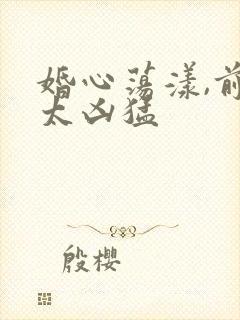 婚心荡漾,前
太凶猛
殷樱